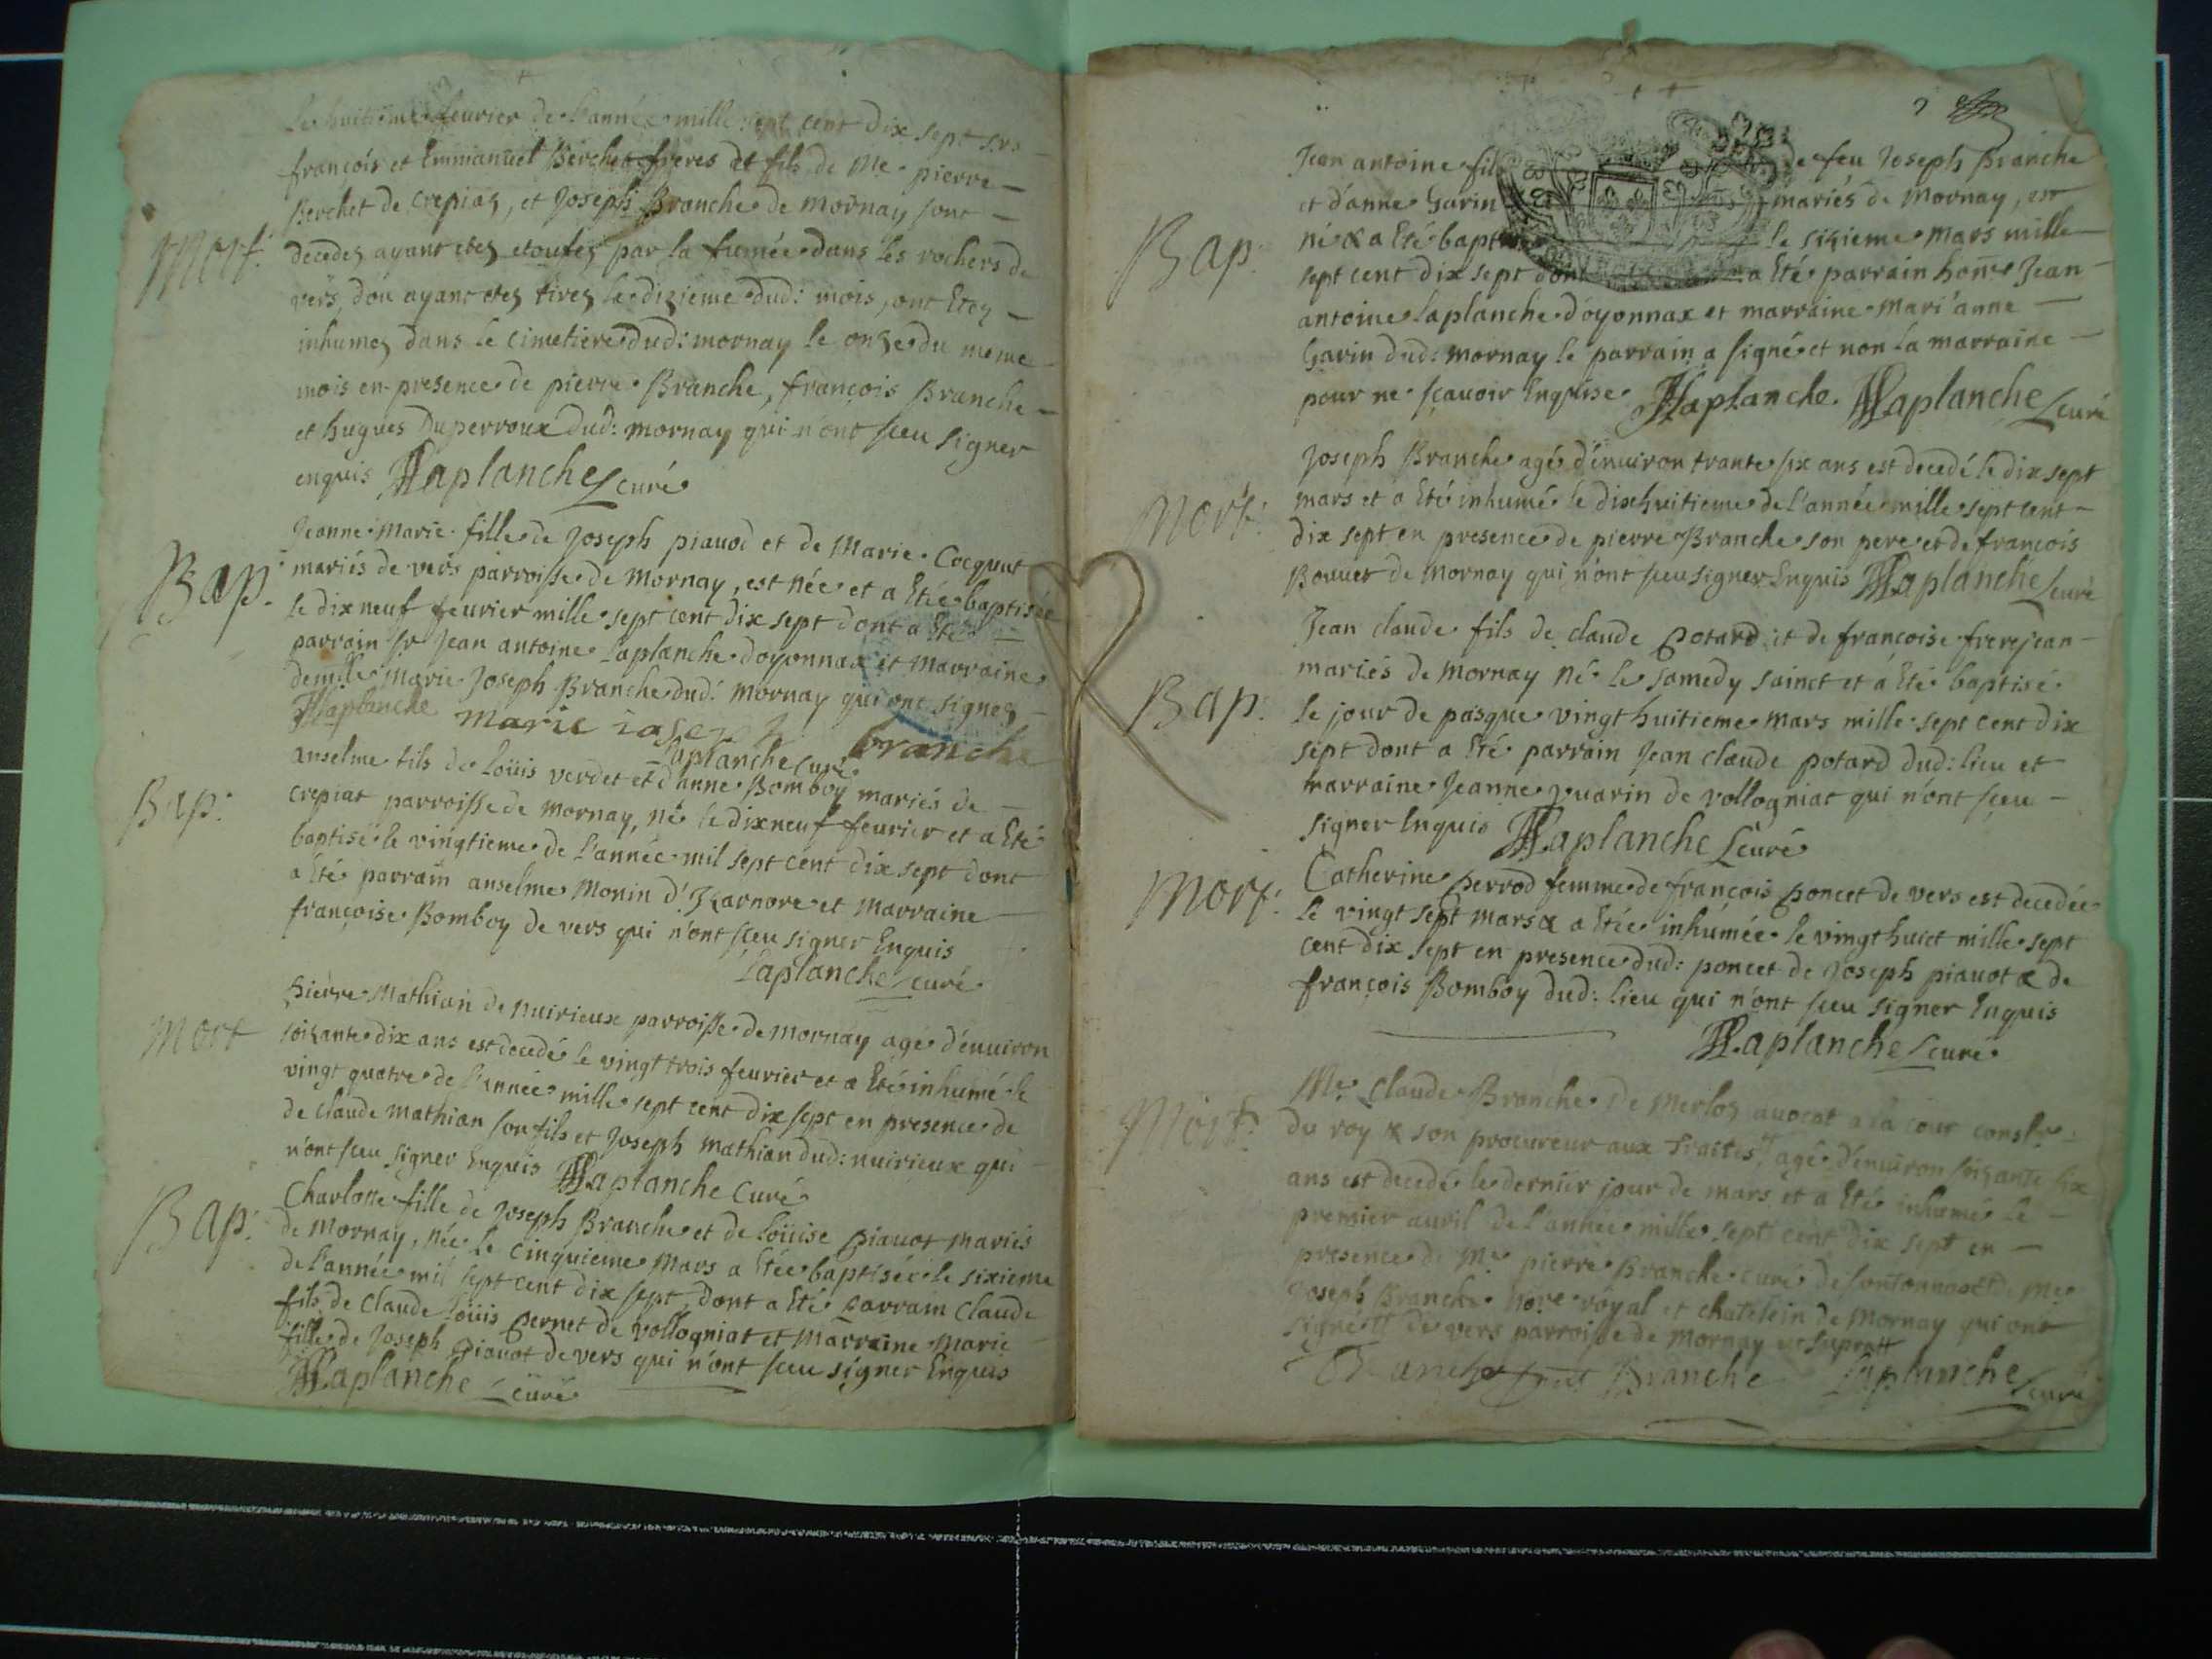 Le huitieme feurier de l'année mille sept cent dix sept srs
françois et Emmanuel Berchet freres et fils de Me pierre
Mort.
Berchet de crepiaz, et Joseph Branche de mornay sont
decedez ayant etez etoufez par la fumée dans les rochers de
vers, d'ou ayant etez tirez le dizieme dud: mois, ont Etez
inhumez dans le cimetiere dud: mornay le onze du meme
mois en presence de pierre Branche, françois Branche
et hugues Duperroux dud: mornay qui n'ont sceu signer
enquis Laplanche curé
Bap.
Jeanne Marie fille de Joseph piauod et de Marie Cocquut
mariés de vers parroisse de Mornay, est née et a Eté baptisée
le dix neuf feurier mille sept cent dix sept dont a Eté
parrain sr Jean antoine Laplanche d'oyonnax et marraine
demlle Marie Joseph Branche dud: mornay qui ont signez
Laplanche marie iaseph branche
Laplanche curé
Bap:
anselme fils de Loüis verdet et d'anne Bomboy mariés de
crepiat parroisse de mornay, né le dix neuf feurier et a Eté
baptisé le vingtieme de l'année mil sept cent dix sept dont
a Eté parrain anselme Monin d'Izarnore et marraine
françoise Bomboy de vers qui n'ont sceu signer Enquis
Laplanche curé
Mort
Pierre Mathian de nuirieux parroisse de Mornay agé d'enuiron
soizante dix ans est decedé le vingt trois feurier et a Eté inhumé le
vingt quatre de l'année mille sept cent dix sept en presence de
de claude mathian son fils et Joseph mathian dud: nuirieux qui
n'ont sceu signer Enquis Laplanche Curé
Bap:
Charlotte fille de Joseph Branche et de Loüise piauot mariés
de Mornay, née le cinquieme Mars a Etée baptisée le sixieme
de l'année mil sept cent dix sept, dont a Eté parrain Claude
fils de Claude Loüis pernet de vollogniat et Marraine Marie
fille de Joseph piauot de vers qui n'ont sceu signer Enquis
Laplanche Curé
2
Jean antoine fils de feu Joseph Branche
et d'anne Garin mariés de Mornay, est
Bap.
né & a Eté bapt le sizieme mars mille
sept cent dix sept dont a Eté parrain honne Jean
antoine Laplanche d'oyonnax et marraine Mari'anne
Garin dud: mornay le parrain a signé et non la marraine
pour ne sçauoir Enquise Laplanche. Laplanche curé
Mort:
Joseph Branche agé d'enuiron trante six ans est decedé le dix sept
mars et a Eté inhumé le dixhuitieme de l'année mille sept cent
dix sept en presence de pierre Branche son pere et de françois
Bouuet de Mornay qui n'ont sceu signer Enquis Laplanche curé
Bap:
Jean claude fils de claude potard et de françoise frerejean
mariés de Mornay né le samedy sainct et a Eté baptisé
le jour de pasque vingt huitieme Mars mille sept cent dix
sept dont a Eté parrain Jean claude potard dud: lieu et
marraine Jeanne juarin de vollogniat qui n'ont sceu
signer Enquis Laplanche Curé
Mort:
Catherine perrod femme de françois poncet de vers est decedée
le vingt sept mars & a Etée inhumée le vingt huict mille sept
cent dix sept en presence dud: poncet de Joseph piauot & de
françois Bomboy dud: lieu qui n'ont sceu signer Enquis
Laplanche curé
Mort.
Me Claude Branche De Merloz auocat a la cour conslr
du roy & son procureur aux Traites, agé d'enuiron soizante six
ans est decedé le dernier jour de mars et a Eté inhumé le
premier auril de l'année mille sept cent dix sept en
presence de Me pierre Branche curé de et de Me
Joseph Branche nore royal et chatelein de Mornay qui ont
signé de vers parroisse de Mornay
Branche Branche Laplanche curé